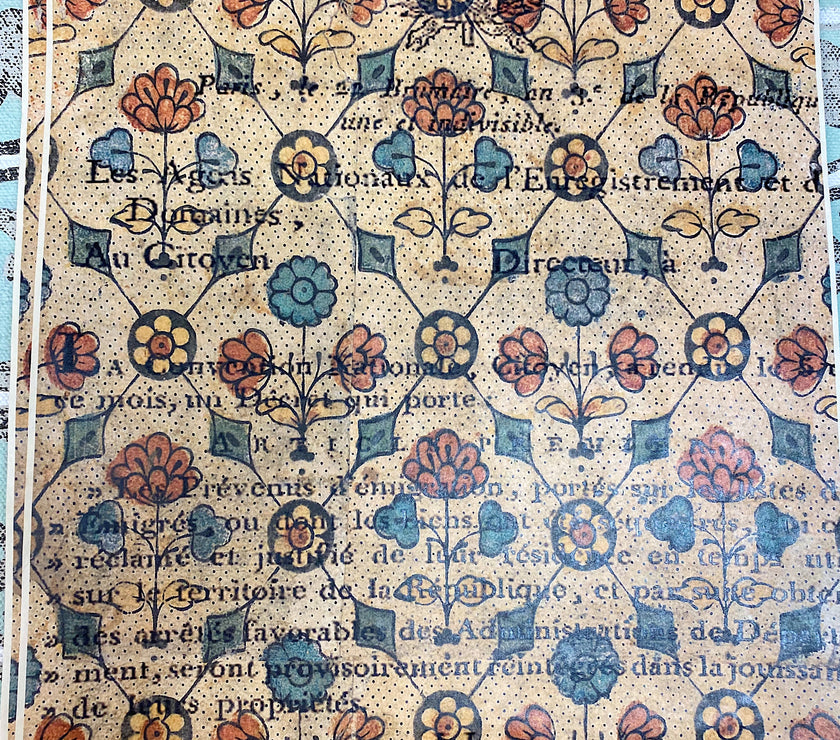 Paris, le 22 Brumaire, an 3.e de la Républiqu
une et indivisible.
Les Agens Nationaux de l'Enregistrement et d
Domaines,
Au Citoyen Directeur, à
LA Convention Nationale, Citoyen, a rendu le
ce mois, un Décret qui porte :
ARTICLE PREMIER
» Les Prévenus d'émigration, portés sur les listes d
» Emigrés, ou dont les biens ont été séquestrés, qui
» réclamé et justifié de leur résidence en temps uti
» sur le territoire de la République, et par suite obten
» des arrêtés favorables des Administrations de Dépa
» ment, seront provisoirement réintégrés dans la jouissan
» de leurs propriétés.